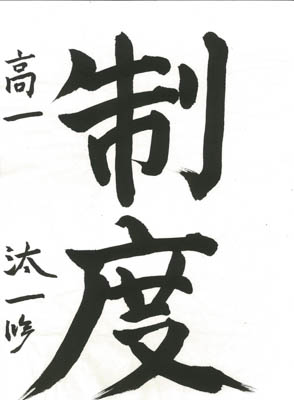 制度
高一 汰一修